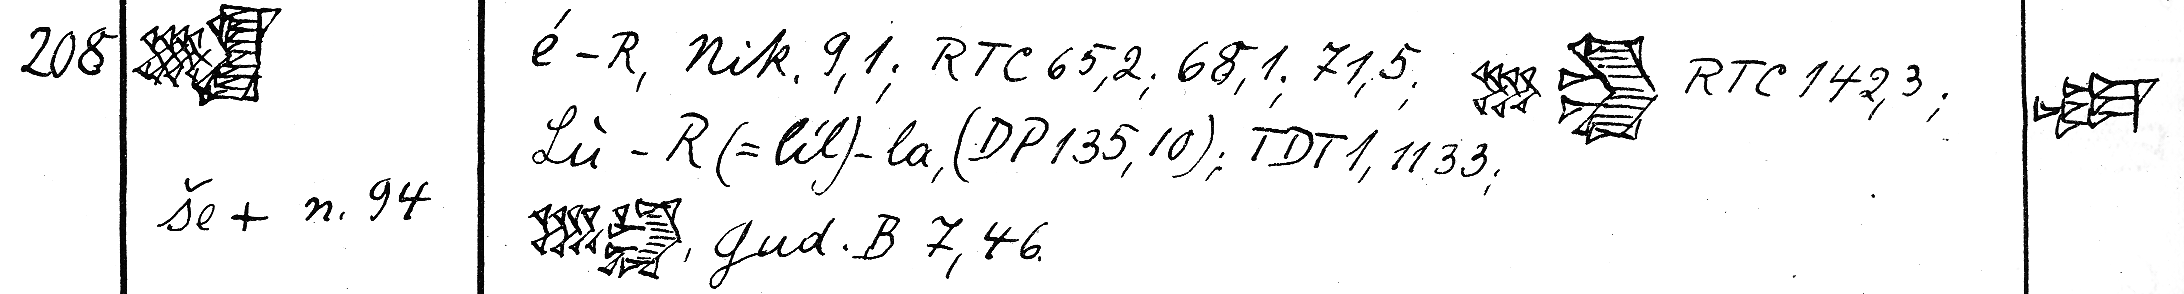 208 é-R, Nik. 9,1; RTC 65,2; 68,1; 71,5; RTC 142,3;
Lù-R (= líl)-la, (DP 135,10); TDT 1, 1133;
še + n. 94 , Gud. B 7,46.